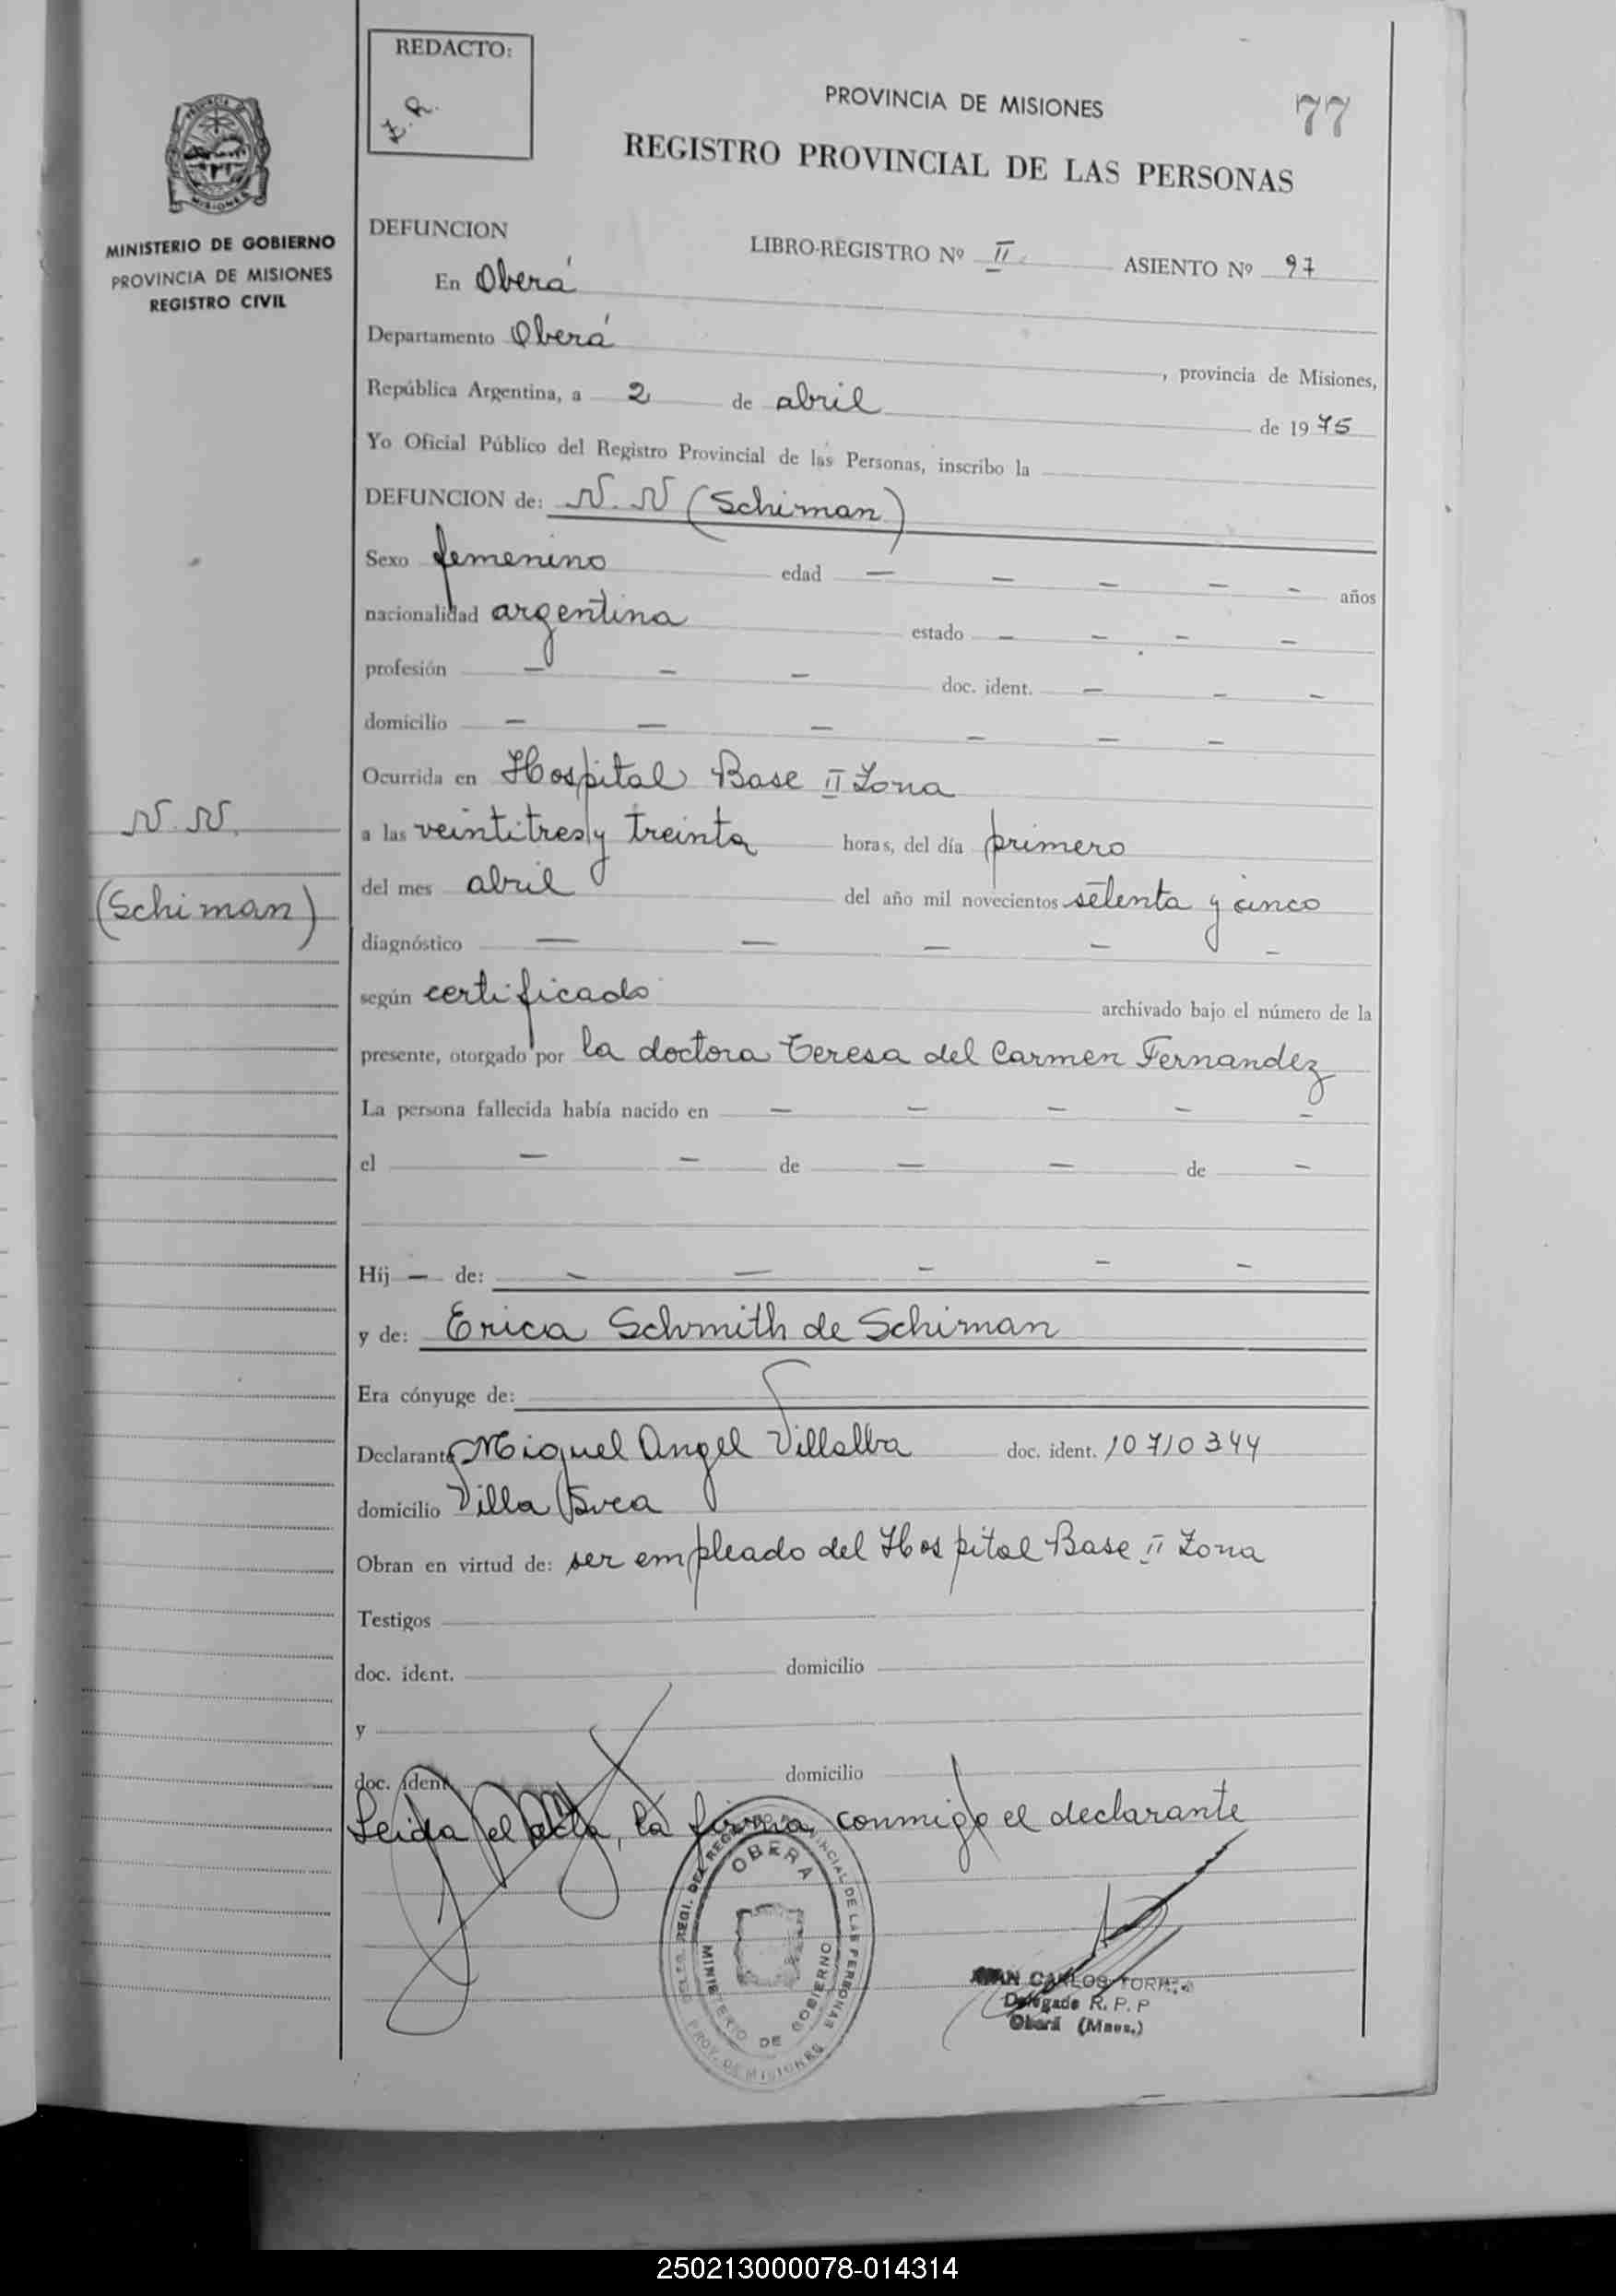 REDACTO:
E. R.
PROVINCIA DE MISIONES
77
REGISTRO PROVINCIAL DE LAS PERSONAS
PROVINCIA DE
MISIONES
MINISTERIO DE GOBIERNO
PROVINCIA DE MISIONES
REGISTRO CIVIL
DEFUNCION
LIBRO-REGISTRO Nº II ASIENTO Nº 97
En Oberá
Departamento Oberá, provincia de Misiones,
República Argentina, a 2 de abril de 1975
Yo Oficial Público del Registro Provincial de las Personas, inscribo la
DEFUNCION de: N. N (Schiman)
Sexo femenino edad — — — — — años
nacionalidad argentina estado — — — —
profesión — — — doc. ident. — — —
domicilio — — — — — —
Ocurrida en Hospital Base II Zona
N. N.
(Schiman)
a las veintitres y treinta horas, del día primero
del mes abril del año mil novecientos setenta y cinco
diagnóstico — — — — —
según certificado archivado bajo el número de la
presente, otorgado por la doctora Teresa del Carmen Fernandez
La persona fallecida había nacido en — — — — —
el — — de — — de —
Hij — de: — — — — —
y de: Erica Schmith de Schiman
Era cónyuge de:
Declarante Miguel Angel Villalba doc. ident. 10710344
domicilio Villa Svea
Obran en virtud de: ser empleado del Hospital Base II Zona
Testigos
doc. ident. domicilio
y
doc. ident. domicilio
Leida el acta, la firma conmigo el declarante
OBERA
MINISTERIO DE GOBIERNO
REGI. DEL REGISTRO PROVINCIAL DE LAS PERSONAS
PROV. DE MISIONES
JUAN CARLOS TORRES
Delegado R. P. P
Oberá (Mnes.)
250213000078-014314